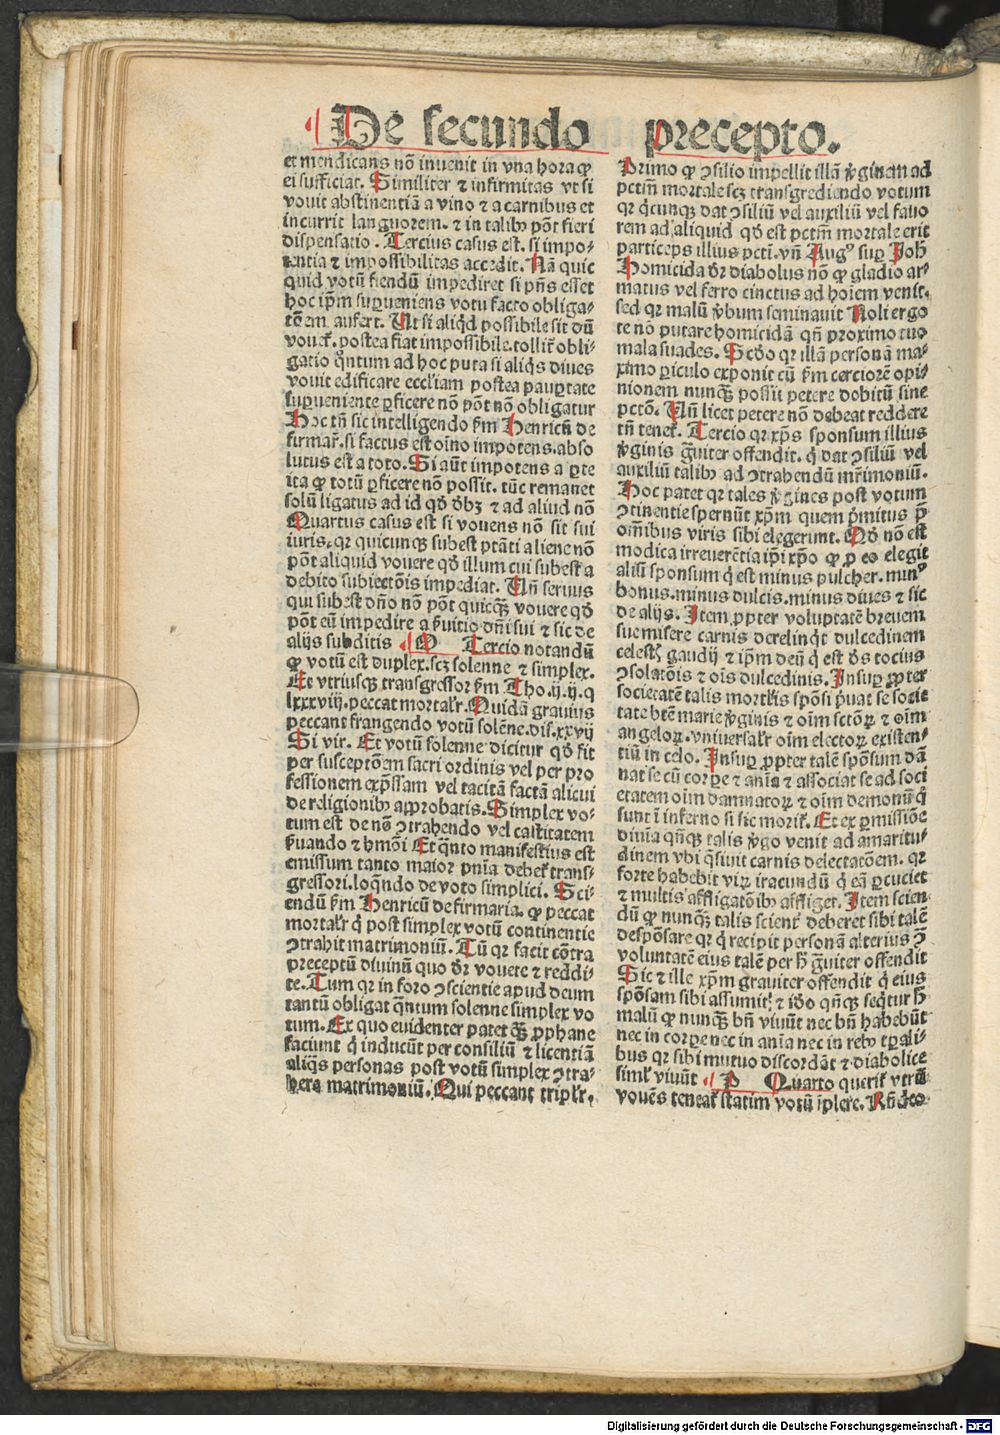 De secundo precepto.
et mendicans nõ inuenit in vna hora ꝙ
ei sufficiat. Similiter ⁊ infirmitas vt si
vouit abstinentiã a vino ⁊ a carnibus et
incurrit languorem. ⁊ in talibꝫ põt fieri
dispensatio. Tercius casus est. si impo⸗
tentia ⁊ impossibilitas accedit. Nã quic
quid votũ fiendũ impediret si pñs esset
hoc ip̃m suꝑueniens votu facto obliga⸗
tõem aufert. Ut si aliqd possibile sit dũ
vouet̃. postea fiat impossibile. tollit̃ obli⸗
gatio qñtum ad hoc puta si aliqs diues
vouit edificare eccl̃iam postea pauꝑtate
suꝑueniente ꝑficere nõ põt nõ obligatur
Hoc tñ sic intelligendo ẜm Henricũ de
firmar̃. si factus est oĩno impotens. abso
lutus est a toto. Si aũt impotens a ꝑte
ita ꝙ totũ ꝑficere nõ possit. tũc remanet
solũ ligatus ad id qđ đbꝫ ⁊ ad aliud nõ
Quartus casus est si vouens nõ sit sui
iuris. qꝛ quicunqꝫ subest ptãti aliene nõ
põt aliquid vouere qđ illum cui subest a
debito subiectõis impediat. Uñ seruus
qui subest dño nõ põt quicqꝫ vouere qđ
põt eũ impedire a ẜuitio dñi sui ⁊ sic de
alijs subditis O Tercio notandũ
ꝙ votũ est duplex. scꝫ solenne ⁊ simplex.
Et vtriusqꝫ transgressor ẜm Tho. ij. ij. q
lxxxviij. peccat mortalr̃. Quidã grauius
peccant frangendo votũ solẽne. dis. xxvij
Si vir. Et votũ solenne dicitur qđ fit
per susceptõem sacri ordinis vel per pro
fessionem exp̃ssam vel tacitã factã alicui
de religionibꝫ approbatis. Simplex vo⸗
tum est de nõ ↄtrahendo vel castitatem
ẜuando ⁊ hmõi Et qñto manifestius est
emissum tanto maior pñia debet̃ trans⸗
gressori. loqñdo de voto simplici. Sci⸗
endũ ẜm Henricũ de firmaria. ꝙ peccat
mortalr̃ q̇ post simplex votũ continentie
ↄtrahit matrimoniũ. Tũ qꝛ facit cõtra
preceptũ diuinũ quo đr vouete ⁊ reddi⸗
te. Tum qꝛ in foro ↄscientie apud deum
tantũ obligat qñtum solenne simplex vo
tum. Ex quo euidenter patet qꝫ ꝓphane
faciunt q̇ inducũt per consiliũ ⁊ licentiã
aliqs personas post votũ simplex ↄtra⸗
here matrimoniũ. Qui peccant triplr̃.
Primo ꝙ ↄsilio impellit illã ꝟginem ad
pctm̃ mortale scꝫ transgrediendo votum
qꝛ q̇cunqꝫ dat ↄsiliũ vel auxiliũ vel fauo
rem ad aliquid qđ est pctm̃ mortale erit
particeps illius pcti. vñ Augꝰ suꝑ Joh̃
Homicida đr diabolus nõ ꝙ gladio ar⸗
matus vel ferro cinctus ad hoĩem venit.
sed qꝛ malũ ꝟbum seminauit Noli ergo
te nõ putare homicidã qñ proximo tuo
mala suades. Scđo qꝛ illã personã ma⸗
ximo ꝑiculo exponit cũ ẜm cerciorẽ opi⸗
nionem nunqꝫ possit petere debitũ sine
pctõ. Uñ licet petere nõ debeat reddere
tñ tenet̃. Tercio qꝛ xp̃s sponsum illius
ꝟginis g̃uiter offendit. q̇ dat ↄsiliũ vel
auxiliũ talibꝫ ad ↄtrahendũ mr̃imoniũ.
Hoc patet qꝛ tales ꝟgines post votum
ↄtinentie spernũt xp̃m quem p̃mitus p̃
om̃ibus viris sibi elegerunt. Qđ nõ est
modica irreuerẽtia ip̃i xp̃o ꝙ ꝓ eo elegit
aliũ sponsum q̇ est minus pulcher. minꝰ
bonus. minus dulcis. minus diues ⁊ sic
de alijs. Item ꝓpter voluptatẽ breuem
sue misere carnis derelinqt dulcedinem
celestꝫ gaudij ⁊ ip̃m deũ q̇ est đs tocius
ↄsolatõis ⁊ oĩs dulcedinis. Insuꝑ ꝓpter
societatem talis mortl̃is spõsi p̃uat se socie
tate btẽ marie ꝟginis ⁊ oĩm sctõꝝ ⁊ oĩm
angeloꝝ. vniuersalr̃ oĩm electoꝝ existen⸗
tiũ in celo. Insuꝑ ꝓpter talẽ spõsum dã
nat se cũ corpe ⁊ anĩa ⁊ associat se ad soci
etatem oĩm damnatoꝝ ⁊ oĩm demonũ q̇
sunt ĩ inferno si sic morit̃. Et ex ꝑmissiõe
diuĩa qñqꝫ talis ꝟgo venit ad amaritu⸗
dinem vbi q̃siuit carnis delectatõem. qꝛ
forte habebit virũ iracundũ q̇ eã ꝑcuciet
⁊ multis affligatõibꝫ affliget. Item scien⸗
dũ ꝙ nunqꝫ talis scient̃ deberet sibi talẽ
despõsare qꝛ q̇ recipit personã alterius ↄ̃
voluntatẽ eius talẽ per h̃ g̃uiter offendit
Sic ⁊ ille xp̃m grauiter offendit q̇ eius
spõsam sibi assumit! ⁊ iđo qñqꝫ seqt̃ur h̃
malũ ꝙ nunqꝫ bñ viuũt nec bñ habebũt
nec in corpe nec in anĩa nec in rebꝫ tꝑali⸗
bus qꝛ sibi mutuo discordãt ⁊ diabolice
simr̃ viuũt P Quarto querit̃ vtrũ
vouẽs teneat̃ statim votũ ĩplere. Rñdeo
Digitalisierung gefördert durch die Deutsche Forschungsgemeinschaft - DFG